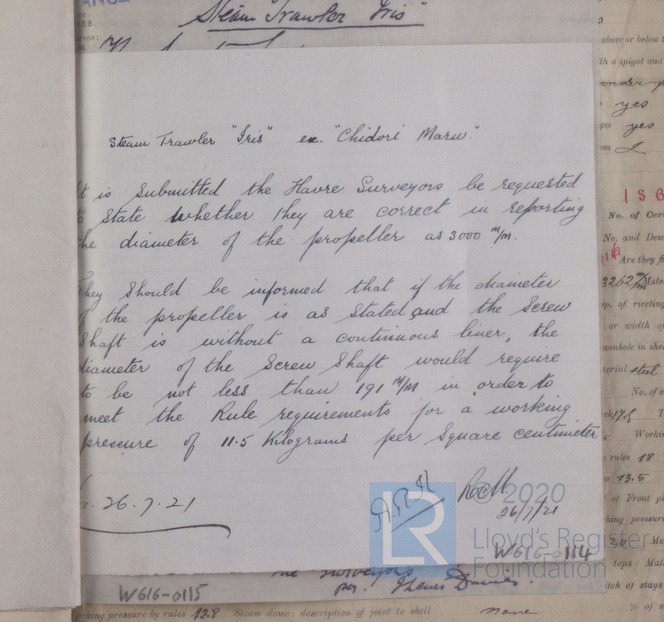 Steam Trawler "Iris"
Steam Trawler "Iris" ex. "Chidori Maru".
It is submitted the Havre Surveyors be requested
to state whether they are correct in reporting
the diameter of the propeller as 3000 m/m.
They should be informed that if the diameter
of the propeller is as stated and the Screw
Shaft is without a continuous liner, the
diameter of the Screw Shaft would require
to be not less than 191 m/m in order to
meet the Rule requirements for a working
pressure of 11.5 Kilograms per Square centimeter
26.7.21
26/7/21
W616-0114
© 2020
Lloyd's Register
Foundation
LR
the surveyors
W616-0115
king pressure by rules 12.8 Steam dome: description of joint to shell none
above or below t
th a spigot and
yes
yes
1 S 6
No. of Cer
No. and Desc
Are they fi
3262 m/m Mate
ip, of riveting
or width o
manhole in she
erial steel
No. of s
17.5
Workin
rules 18
13.5
of Front p
king pressure
30 Me
tops: Mat
itch of stays
% of s